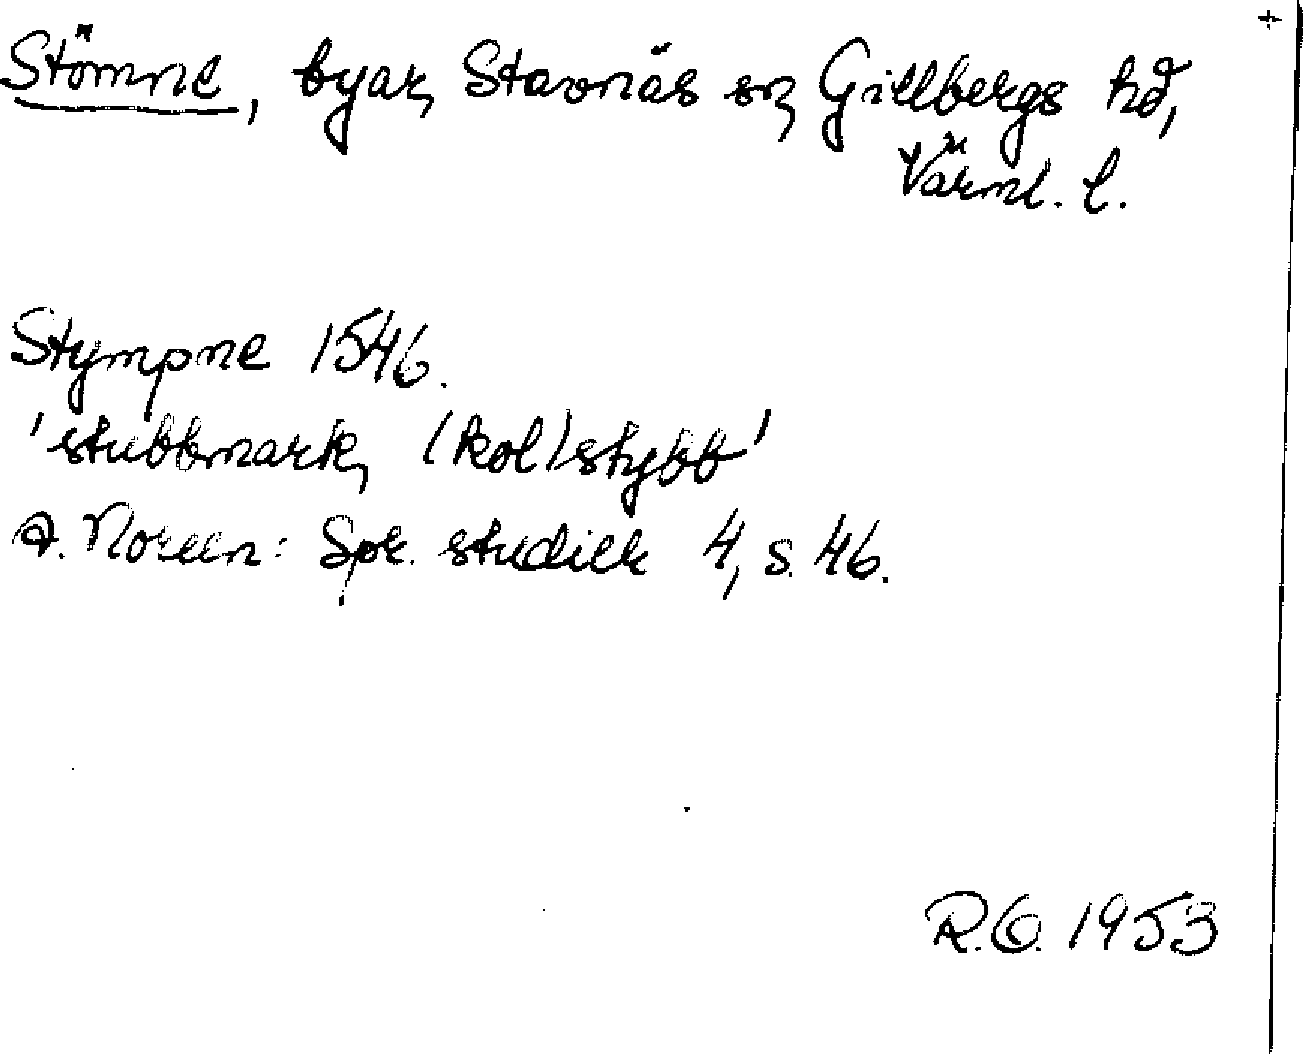 Stömne, byar, Stavnäs sn, Gillbergs hd,
Värml. l.
Stympne 1546.
'stubbmark, (kol)stybb'
A. Noreen: Spr. studier 4, s. 46.
R.O. 1953